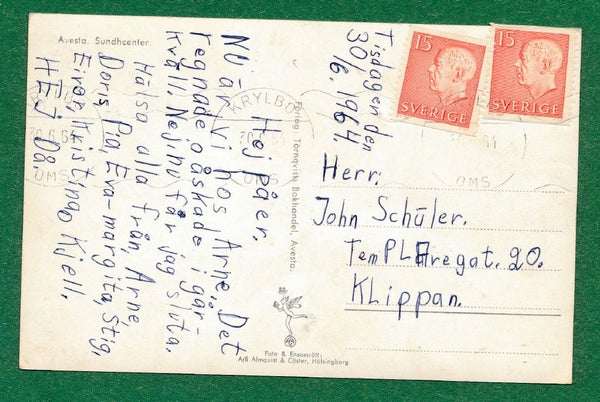 Avesta. Sundhcenter.
Tisdagen den
30/6. 1964.
Hej på er.
NU är vi hos Arne. Det
regnade o åskade i går-
Kväll. Nej nu får jag sluta.
Hälsa alla från, Arne
Doris, Pia, Eva-margita, Stig,
Eivor, Kristina, o Kjell.
HEJ Då
Förlag: Törnqvists Bokhandel, Avesta.
Foto & Ensamrätt:
A/B Almqvist & Cöster, Hälsingborg
15
SVERIGE
15
SVERIGE
KRYLBO
30.6.64
OMS
OMS
OMS
Herr:
John Schüler.
TemPLAregat. 20.
KLippan.